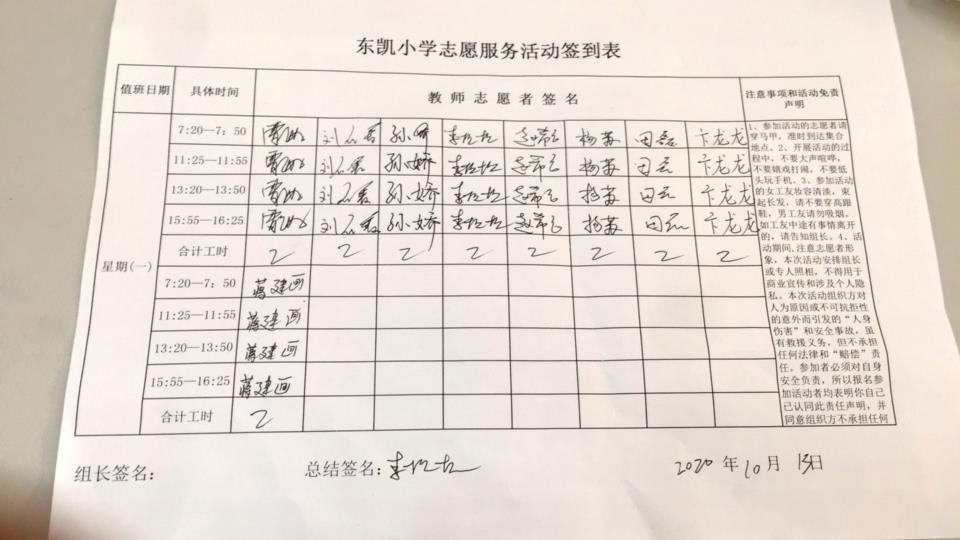 东凯小学志愿服务活动签到表
值班日期 具体时间 教师志愿者签名 注意事项和活动免责
声明
7:20—7:50 孙娇 杨苏 田磊 卞龙龙
11:25—11:55 孙娇 杨苏 田磊 卞龙龙
13:20—13:50 孙娇 杨苏 田磊 卞龙龙
15:55—16:25 孙娇 杨苏 田磊 卞龙龙
合计工时 2 2 2 2 2 2 2 2
星期(一)
7:20—7:50 蒋建画
11:25—11:55 蒋建画
13:20—13:50 蒋建画
15:55—16:25 蒋建画
合计工时 2
1、参加活动的志愿者请
穿马甲,准时到达集合
地点。2、开展活动的过
程中,不要大声喧哗,
不要嬉戏打闹,不要低
头玩手机。3、参加活动
的女工友妆容清淡,束
起长发,请不要穿高跟
鞋,男工友请勿吸烟。
如工友中途有事情离开
的,请告知组长。4、活
动期间,注意志愿者形
象,本次活动安排组长
或专人照相,不得用于
商业宣传和涉及个人隐
私。本次活动组织方对
人为原因或不可抗拒性
的意外而引发的“人身
伤害”和安全事故,虽
有救援义务,但不承担
任何法律和“赔偿”责
任。参加者必须对自身
安全负责,所以报名参
加活动者均表明你自己
已认同此责任声明,并
同意组织方不承担任何
组长签名: 总结签名: 2020 年 10 月 日